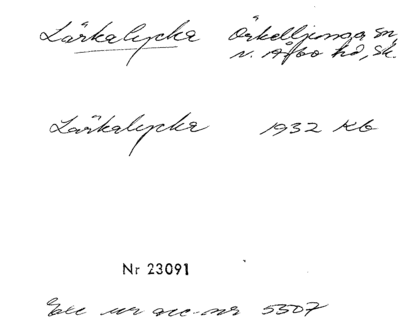 Lärkalycka Örkelljunga sn,
n. Åsbo hd, Sk.
Lärkalycka 1932 Kb
Nr 23091
Enl ur acc-nr 5507